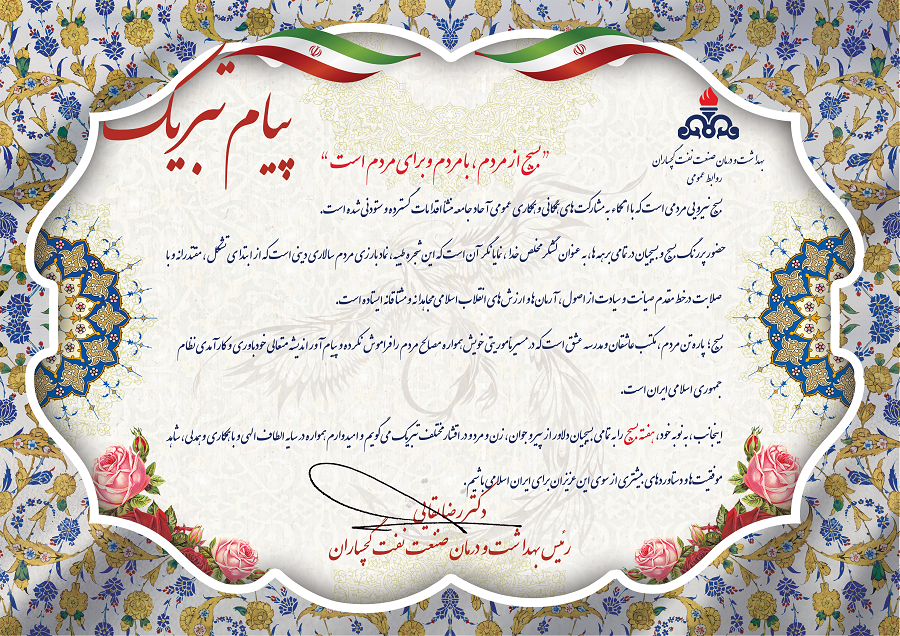 پیام تبریک
بهداشت و درمان صنعت نفت گچساران
روابط عمومی
”بسیج از مردم ، با مردم و برای مردم است“
بسیج نیرویی مردمی است که با اتکاء به مشارکت های همگانی و همکاری عمومی آحاد جامعه منشا اقدامات گسترده و ستودنی شده است.
حضور پررنگ بسیج و بسیجیان در تمامی برهه ها، به عنوان لشگر مخلص خدا ، نمایانگر آن است که این شجره طیبه، نماد بارزی مردم سالاری دینی است که از ابتدای تشکل ، مقتدرانه و با
صلابت در خط مقدم صیانت و سیادت از اصول ، آرمان ها و ارزش های انقلاب اسلامی مجاهدانه و مشتاقانه ایستاده است.
بسیج؛ پاره تن مردم ، مکتب عاشقان و مدرسه عشق است که در مسیر ماموریتی خویش همواره مصالح مردم را فراموش نکرده و پیام آور اندیشه متعالی خودباوری و کارآمدی نظام
جمهوری اسلامی ایران است.
اینجانب ، به نوبه خود، هفته بسیج را به تمامی بسیجیان دلاور از پیر و جوان ، زن و مرد و در اقشار مختلف تبریک می گویم و امیدوارم همواره در سایه الطاف الهی و با همکاری و همدلی، شاهد
موفقیت ها و دستاوردهای بیشتری از سوی این عزیزان برای ایران اسلامی باشیم.
دکتر رضا بقائی
رئیس بهداشت و درمان صنعت نفت گچساران